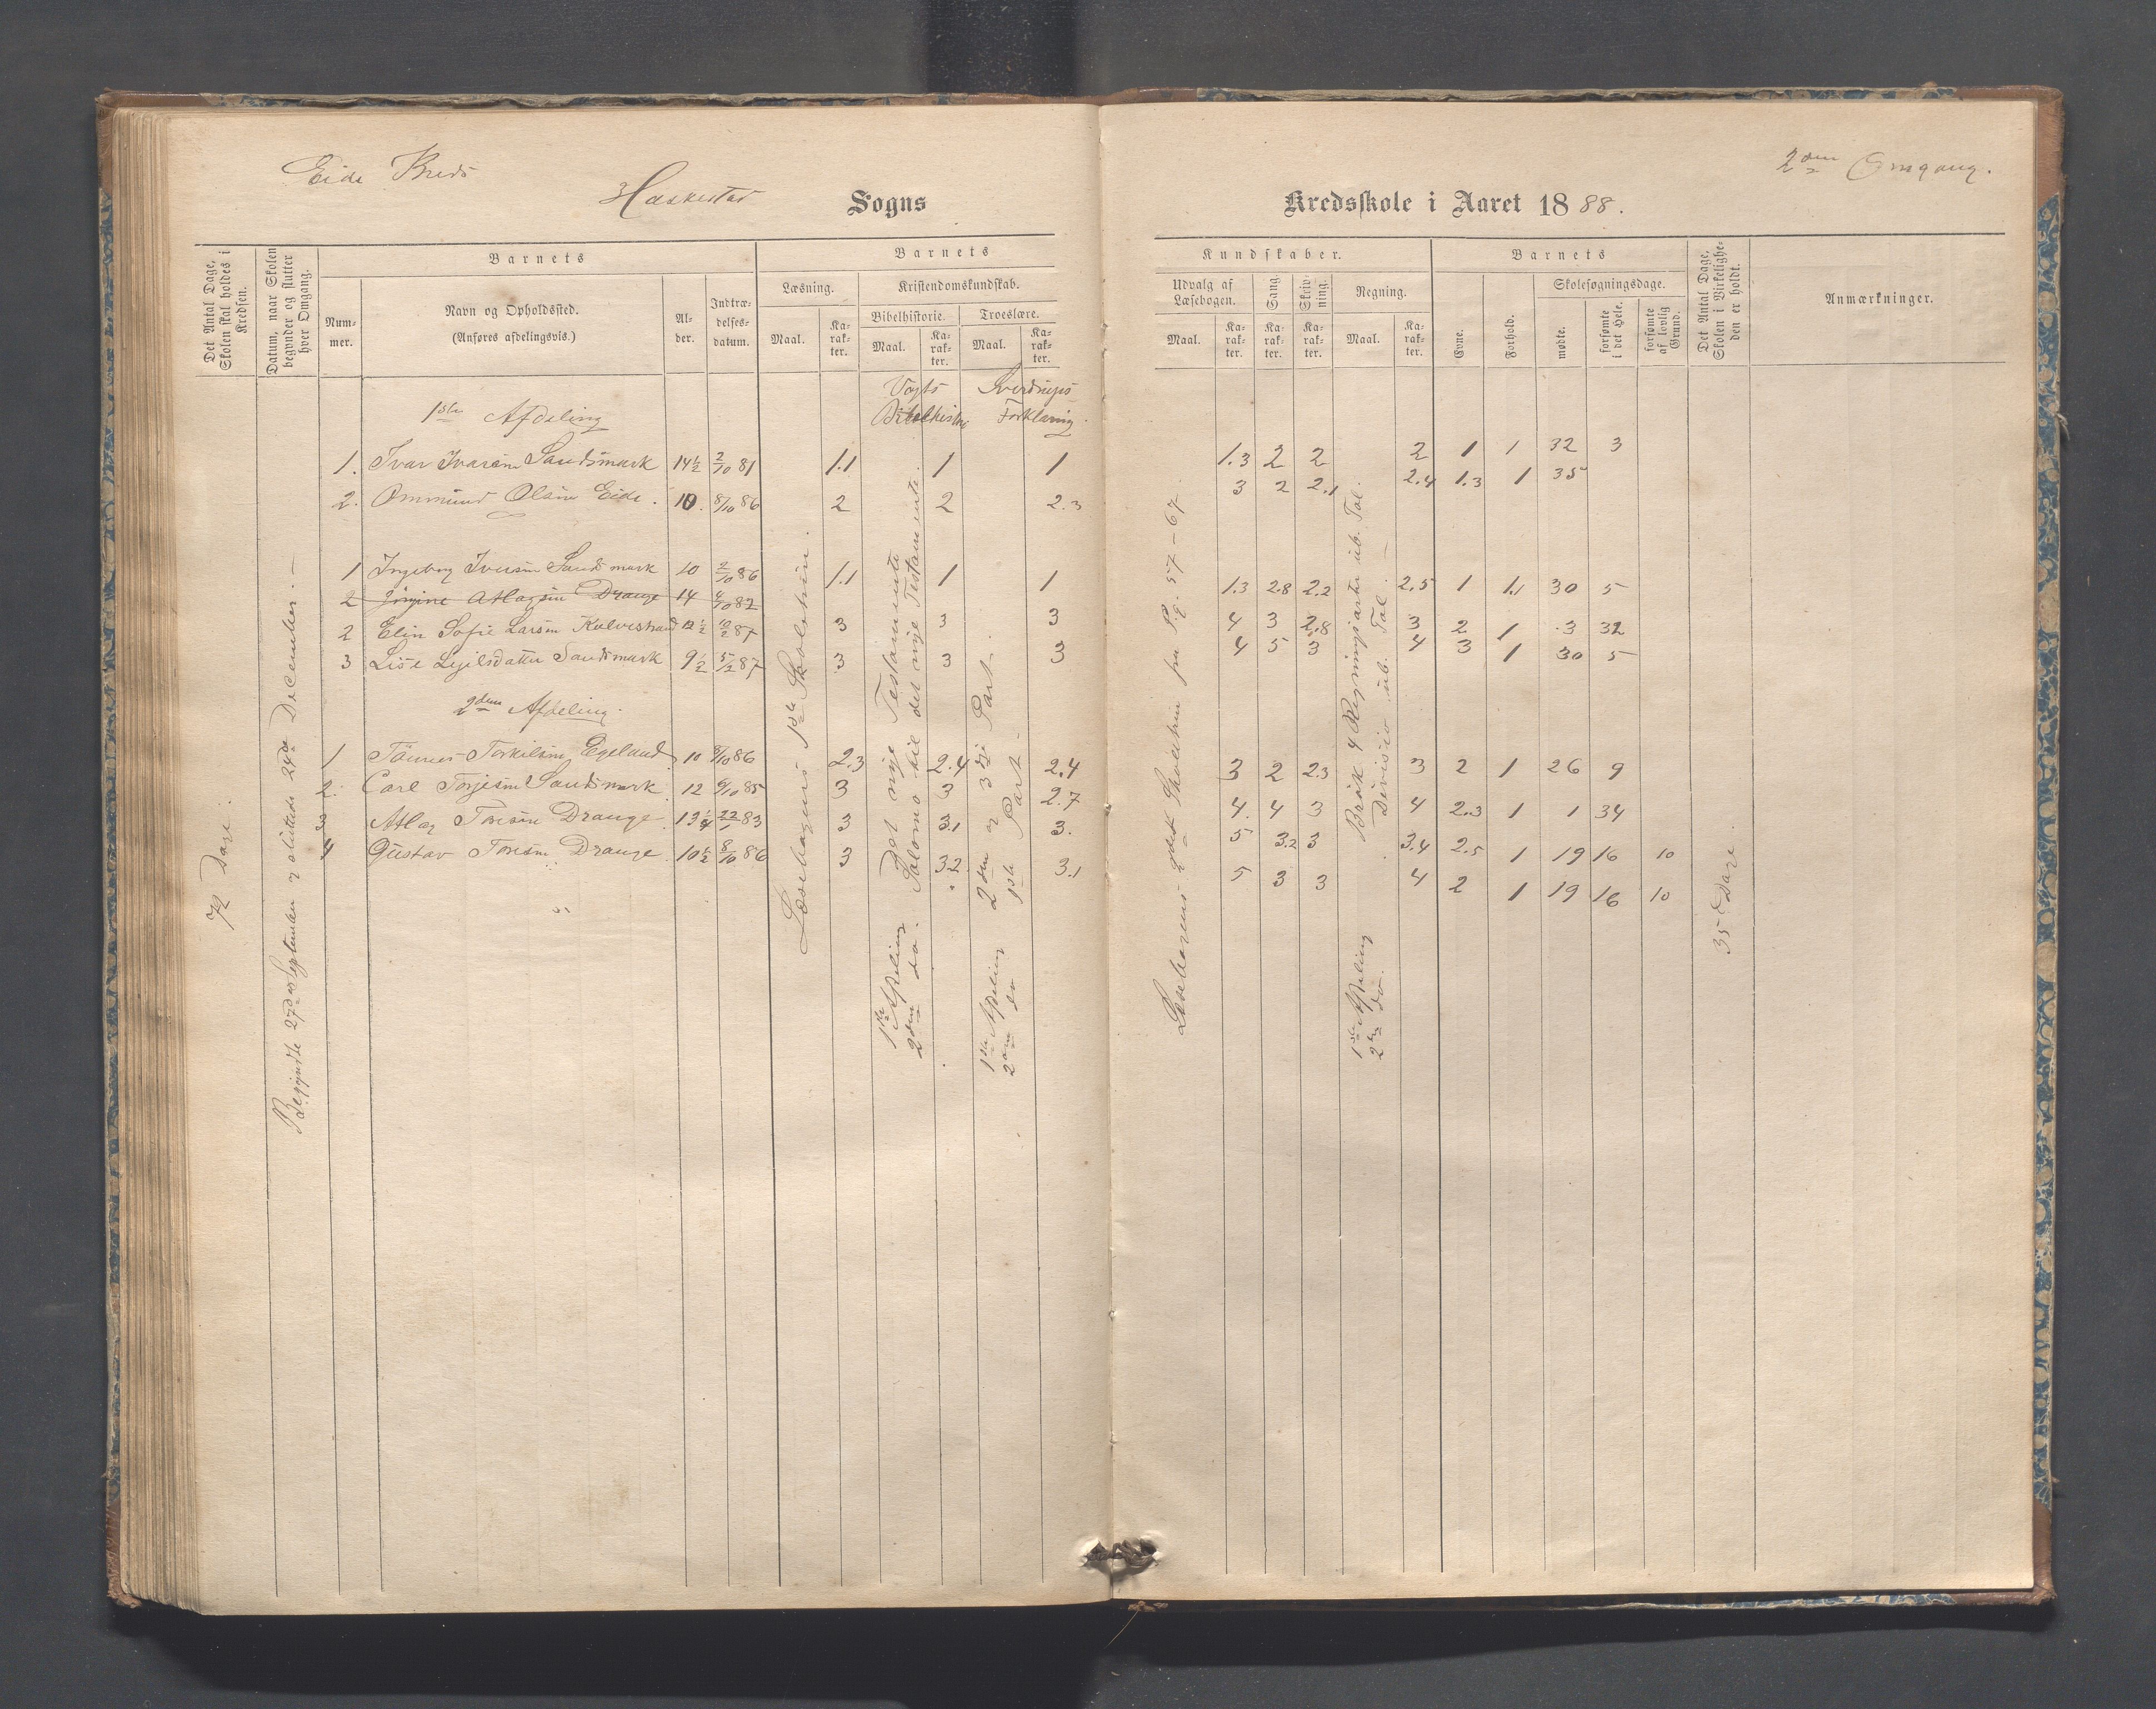 Eide Kreds
Haskestad Sogns
Det Antal Dage, Skolen skal holdes i Kredsen.
Datum, naar Skolen begynder og slutter hver Omgang.
Barnets
Barnets
Num-mer.
Navn og Opholdssted.
(Anføres afdelingsvis.)
Al-der.
Indtræ-delses-datum.
Læsning.
Kristendomskundskab.
Bibelhistorie.
Troeslære.
Maal.
Ka-rak-ter.
Maal.
Ka-rak-ter.
Maal.
Ka-rak-ter.
Vogts Bibelhistorie
Sverdrups Forklaring.
1ste Afdeling
1. Ivar Ivarsen Sandsmark 14½ 2/10 81 1.1 1 1
2. Ommund Olsen Eide. 10. 8/10 86 2 2 2.3
1 Ingeborg Iversen Sandsmark 10 2/10 86 1.1 1 1
2 Jørgine Atlagsen Drange 14 4/10 82
2 Elin Sofie Larsen Kalvestrand 12½ 10/2 87 3 3 3
3 Lise Eyilsdatter Sandsmark 9½ 5/2 87 3 3 3
2den Afdeling.
1 Tönnes Torkilsen Egeland 10 8/10 86 2.3 2.4 2.4
2. Carl Torjesen Sandsmark 12 9/10 85 3 3 2.7
3 Atlag Toresen Drange 13¼ 22/1 83 3 3.1 3.
4 Gustav Toresen Drange 10½ 8/10 86 3 3.2 3.1
72 Dage.
Begyndte 27de September og sluttede 24de December. –
Læsebogens 1ste Skoletrin.
1ste Afdeling Det nye Testamente
2den do. Salomo til det nye Testamente.
1ste Afdeling 2den og 3die Part.
2den do 1ste Part –
Kredsskole i Aaret 1888.
2den Omgang.
Kundskaber.
Barnets
Det Antal Dage, Skolen i Virkelighe-den er holdt.
Anmærkninger.
Udvalg af Læsebogen.
Sang.
Skriv-ning.
Regning.
Evne.
Forhold.
Skolesøgningsdage.
Maal.
Ka-rak-ter.
Ka-rak-ter.
Ka-rak-ter.
Maal.
Ka-rak-ter.
mødte.
forsømte i det Hele.
forsømte af lovlig Grund.
1.3 2 2 2 1 1 32 3
3 2 2.1 2.4 1.3 1 35
1.3 2.8 2.2 2.5 1 1.1 30 5
4 3 2.8 3 2 1 3 32
4 5 3 4 3 1 30 5
3 2 2.3 3 2 1 26 9
4. 4 3 4 2.3 1 1 34
5 3.2 3 3.4 2.5 1 19 16 10
5 3 3 4 2 1 19 16 10
Læsebogens 2det Skoletrin fra Pg. 57–67.
1ste Afdeling Brøk 4 Regningsarter ub. Tal.
2den do. Division ub. Tal. –
35 Dage.